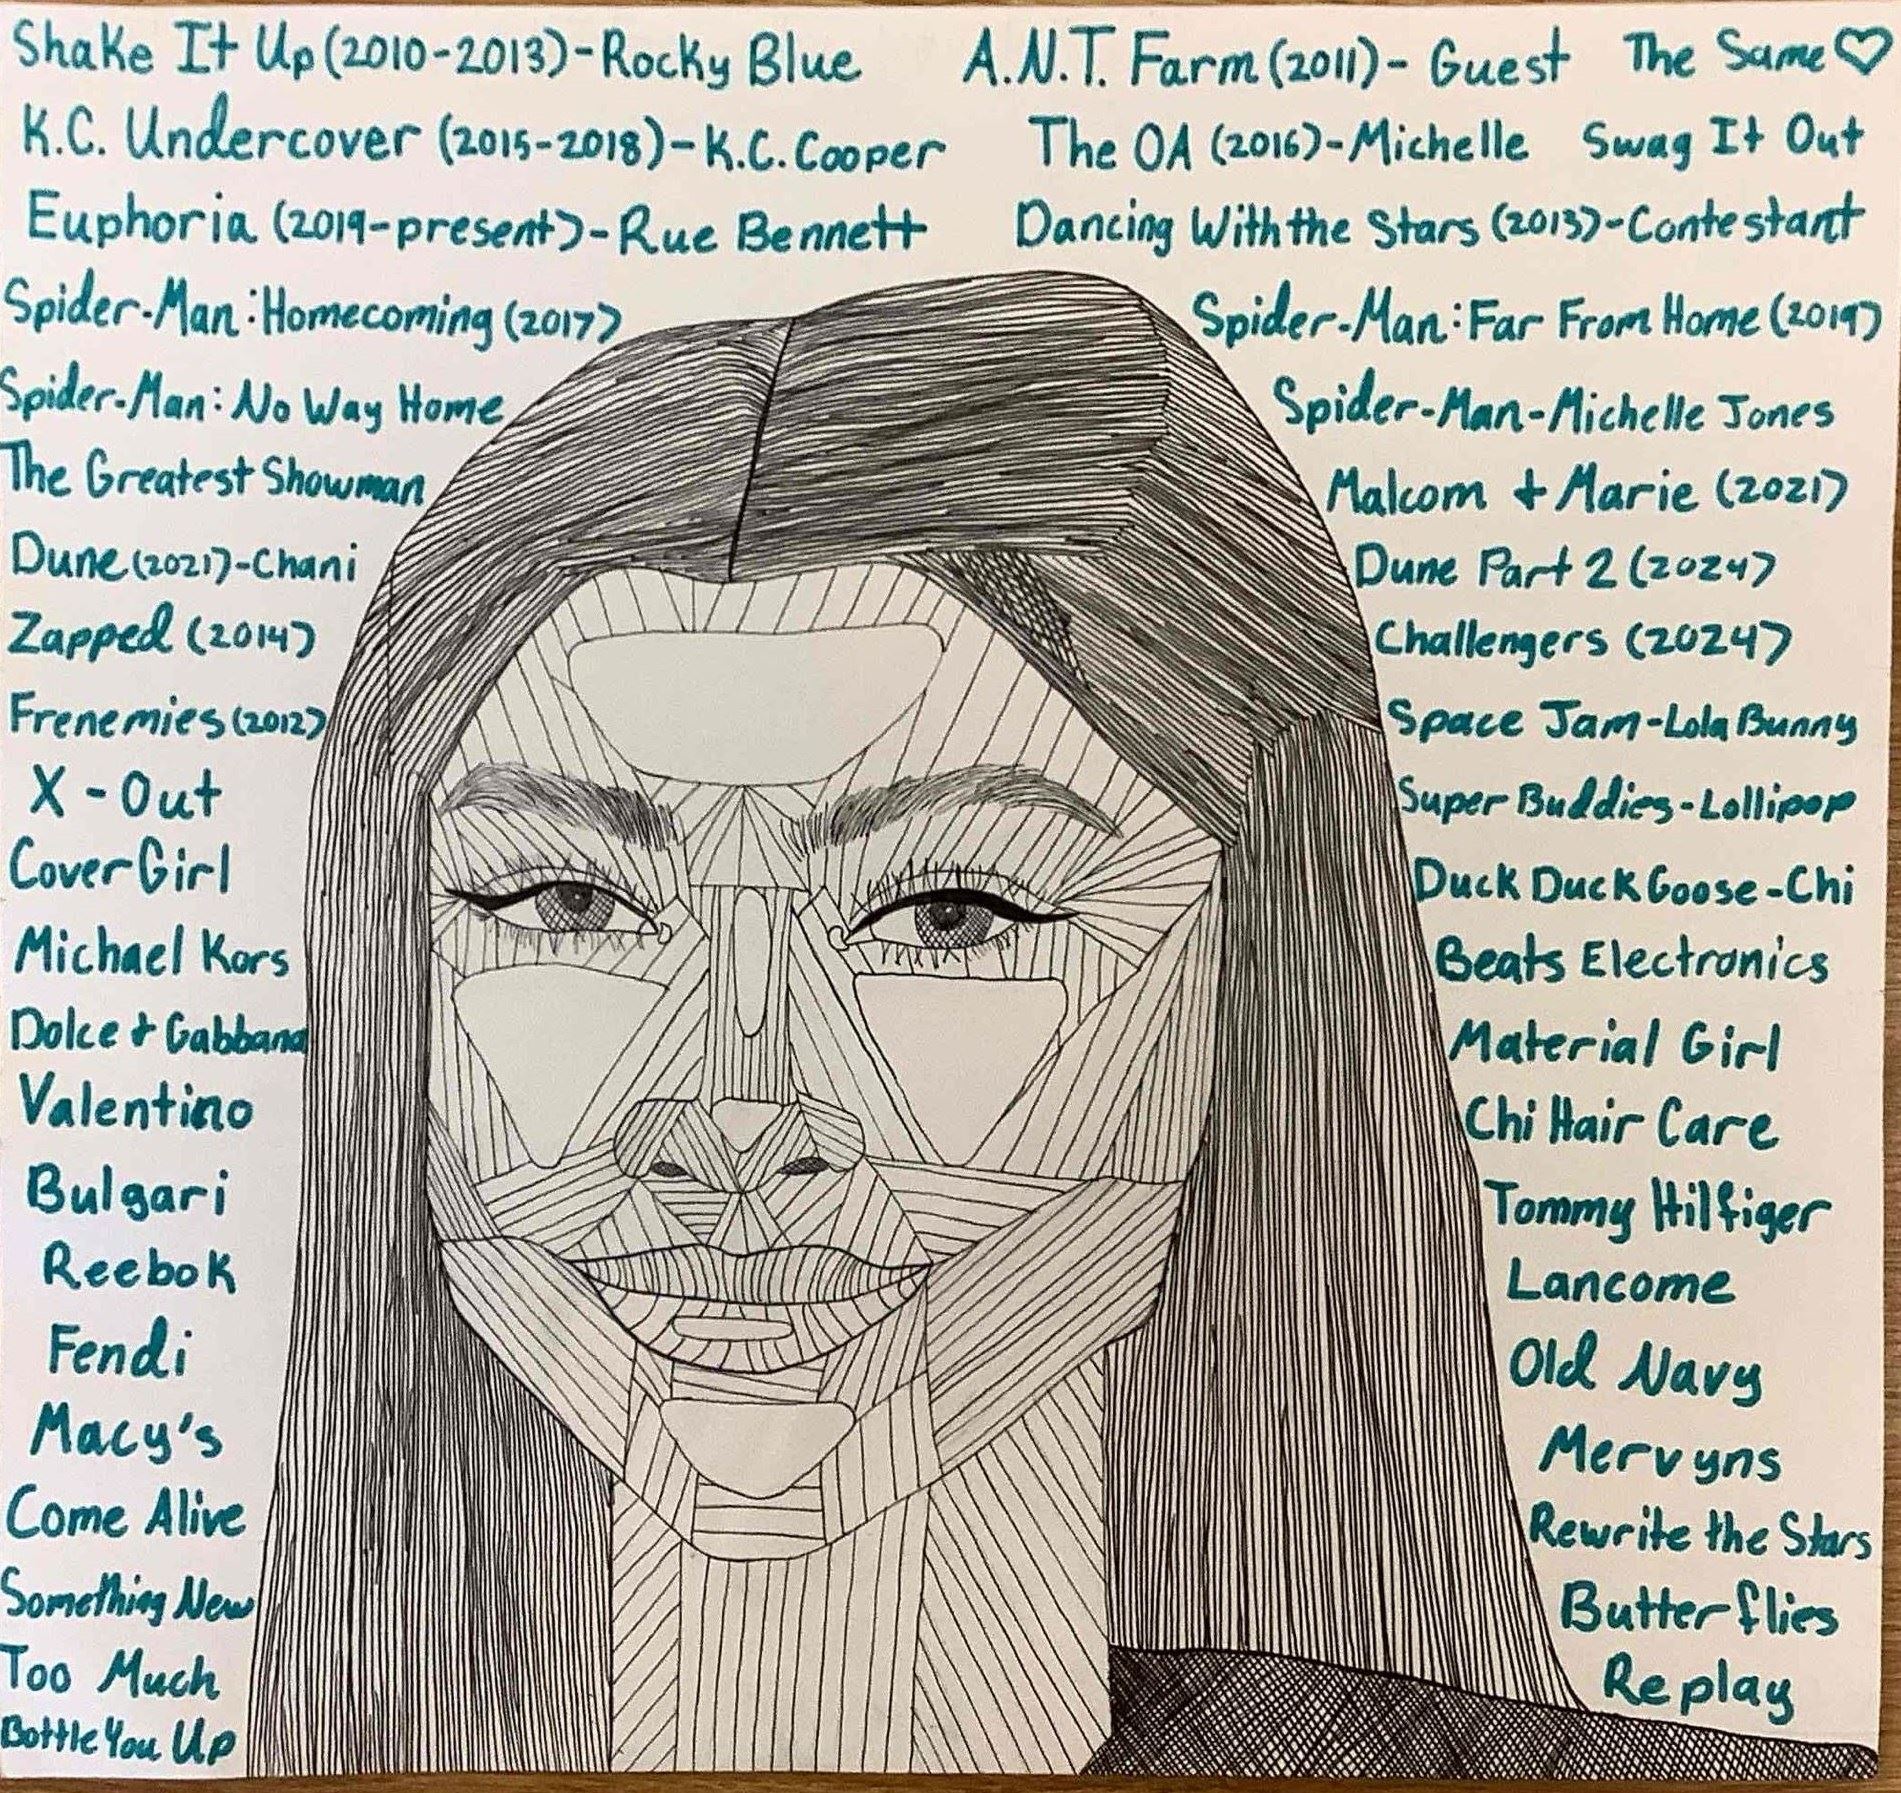 Shake It Up (2010-2013)-Rocky Blue
A.N.T. Farm (2011)- Guest
The Same ♡
K.C. Undercover (2015-2018)-K.C. Cooper
The OA (2016)-Michelle
Swag It Out
Euphoria (2019-present)-Rue Bennett
Dancing With the Stars (2013)-Contestant
Spider-Man: Homecoming (2017)
Spider-Man: Far From Home (2019)
Spider-Man: No Way Home
Spider-Man-Michelle Jones
The Greatest Showman
Malcom + Marie (2021)
Dune (2021)-Chani
Dune Part 2 (2024)
Zapped (2014)
Challengers (2024)
Frenemies (2012)
Space Jam-Lola Bunny
X-Out
Super Buddies-Lollipop
CoverGirl
Duck Duck Goose-Chi
Michael Kors
Beats Electronics
Dolce + Gabbana
Material Girl
Valentino
Chi Hair Care
Bulgari
Tommy Hilfiger
Reebok
Lancome
Fendi
Old Navy
Macy's
Mervyns
Come Alive
Rewrite the Stars
Something New
Butterflies
Too Much
Replay
Bottle You Up